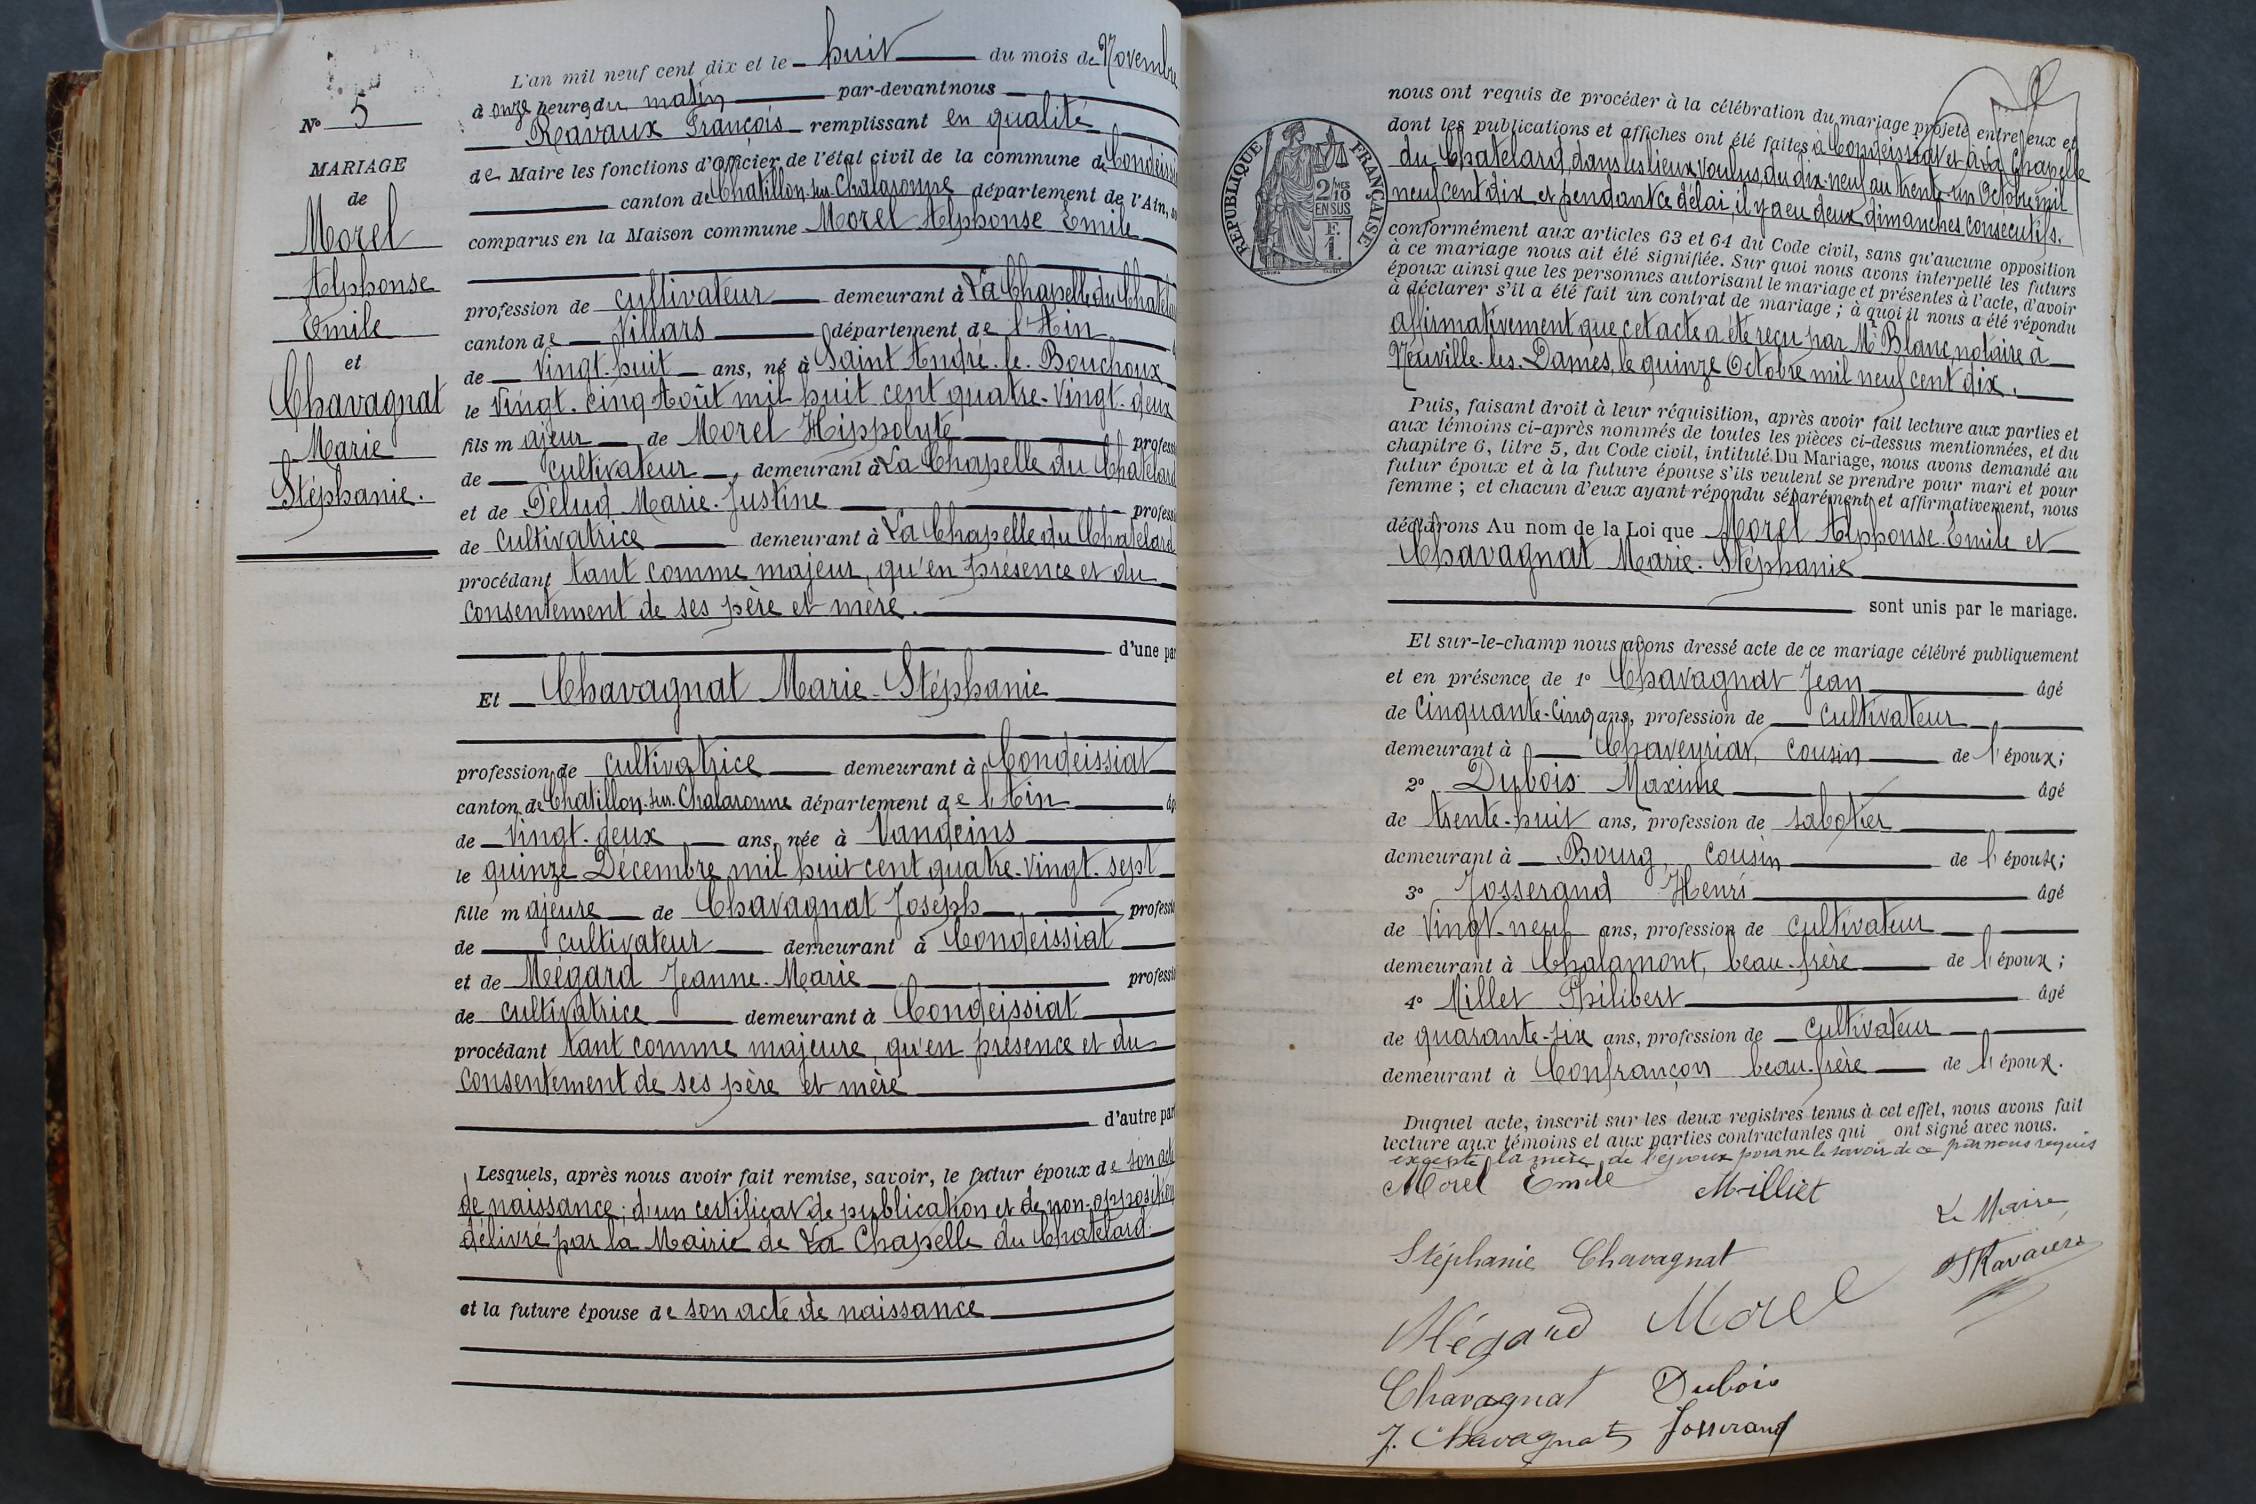 N° 5
MARIAGE
de
Morel
Alphonse
Emile
et
Chavagnat
Marie
Stéphanie.
L'an mil neuf cent dix et le huit du mois de Novembre
à onze heures du matin par-devant nous
Ravaux François remplissant en qualité
de Maire les fonctions d'Officier de l'état civil de la commune de Condeissi
canton de Chatillon-sur-Chalaronne département de l'Ain,
comparus en la Maison commune Morel Alphonse Emile
profession de cultivateur demeurant à La Chapelle du Chatela
canton de Villars département de l'Ain
de Vingt-huit ans, né à Saint André-le-Bouchoux
le Vingt-cinq Août mil huit cent quatre-vingt-deux
fils majeur de Morel Hippolyte professi
de cultivateur, demeurant à La Chapelle du Chatelard
et de Pelud Marie-Justine professi
de cultivatrice demeurant à La Chapelle du Chatelard
procédant tant comme majeur, qu'en présence et du
consentement de ses père et mère.
d'une par
Et Chavagnat Marie-Stéphanie
profession de cultivatrice demeurant à Condeissiat
canton de Chatillon-sur-Chalaronne département de l'Ain âg
de Vingt-deux ans, née à Vandeins
le quinze Décembre mil huit cent quatre-vingt-sept
fille majeure de Chavagnat Joseph professi
de cultivateur demeurant à Condeissiat
et de Mégard Jeanne-Marie professi
de cultivatrice demeurant à Condeissiat
procédant tant comme majeure, qu'en présence et du
consentement de ses père et mère
d'autre par
Lesquels, après nous avoir fait remise, savoir, le futur époux de son acte
de naissance; d'un certificat de publication et de non-opposition
délivré par la Mairie de La Chapelle du Chatelard.
et la future épouse de son acte de naissance
RÉPUBLIQUE FRANÇAISE
2/10 MES
EN SUS
F.
1.
nous ont requis de procéder à la célébration du mariage projeté entre eux et
dont les publications et affiches ont été faites à Condeissiat et à La Chapelle
du Chatelard, dans les lieux voulus, du dix-neuf au trente-un Octobre mil
neuf cent dix et pendant ce délai, il y a eu deux dimanches consécutifs.
conformément aux articles 63 et 64 du Code civil, sans qu'aucune opposition
à ce mariage nous ait été signifiée. Sur quoi nous avons interpellé les futurs
époux ainsi que les personnes autorisant le mariage et présentes à l'acte, d'avoir
à déclarer s'il a été fait un contrat de mariage; à quoi il nous a été répondu
affirmativement que cet acte a été reçu par Me Blanc, notaire à
Neuville-les-Dames, le quinze Octobre mil neuf cent dix.
Puis, faisant droit à leur réquisition, après avoir fait lecture aux parties et
aux témoins ci-après nommés de toutes les pièces ci-dessus mentionnées, et du
chapitre 6, titre 5, du Code civil, intitulé Du Mariage, nous avons demandé au
futur époux et à la future épouse s'ils veulent se prendre pour mari et pour
femme; et chacun d'eux ayant répondu séparément et affirmativement, nous
déclarons Au nom de la Loi que Morel Alphonse-Emile et
Chavagnat Marie-Stéphanie
sont unis par le mariage.
Et sur-le-champ nous avons dressé acte de ce mariage célébré publiquement
et en présence de 1° Chavagnat Jean âgé
de Cinquante-Cinq ans, profession de cultivateur
demeurant à Chaveyriat, cousin de l'époux;
2° Dubois Maxime âgé
de trente-huit ans, profession de sabotier
demeurant à Bourg, cousin de l'épouse;
3° Josserand Henri âgé
de Vingt-neuf ans, profession de cultivateur
demeurant à Chalamont, beau-frère de l'époux;
4° Millet Philibert âgé
de quarante-six ans, profession de cultivateur
demeurant à Confrançon beau-frère de l'époux.
Duquel acte, inscrit sur les deux registres tenus à cet effet, nous avons fait
lecture aux témoins et aux parties contractantes qui ont signé avec nous.
excepté la mère de l'époux pour ne le savoir de ce par nous requis
Morel Emile Milliet
Le Maire,
Stéphanie Chavagnat
Ravaux
Mégard Morel
Chavagnat Dubois
J. Chavagnat Josserand